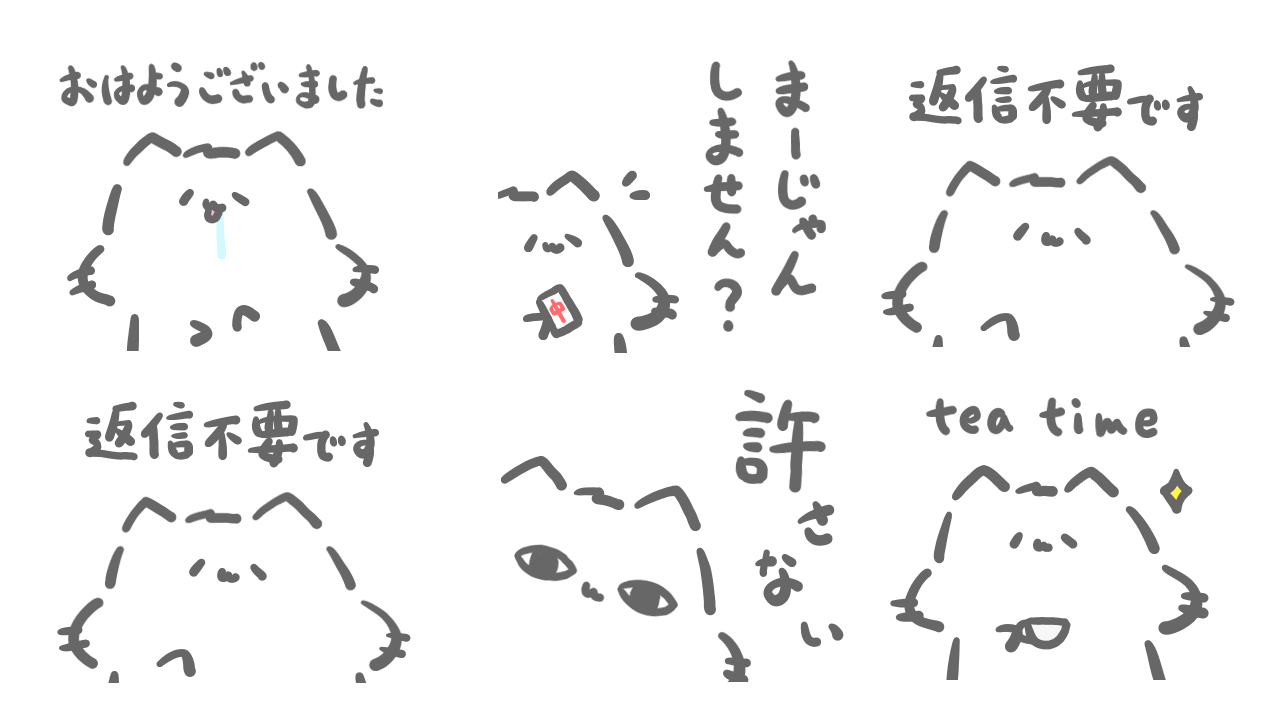 おはようございました
まーじゃん
しません？
中
返信不要です
返信不要です
許さない
tea time